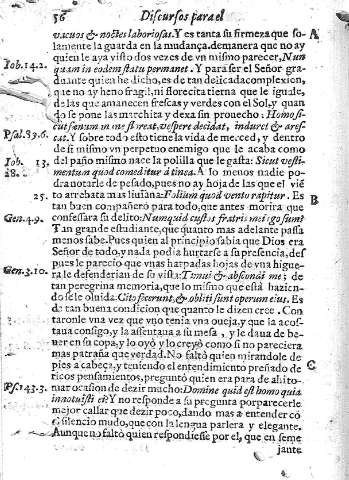 56 Discursos para el
vacuos & noctes laboriosas. Y es tanta su firmeza que so-
lamente la guarda en la mudança, demanera que no ay
quien le aya visto dos vezes de vn mismo parecer, Nun
quam in eodem statu permanet. Y para ser el Señor gra-
duante quien he dicho, es de tan delicada complexion,
que no ay heno fragil, ni florecita tierna que le iguale,
de las que amanecen frescas y verdes con el Sol, y quan
do se pone las marchita y dexa sin prouecho: Homo si-
cut fœnum in mane floreat, vespere decidat, induret & ares-
cat. Y sobre todo esto tiene la vida de merced, y dentro
de si mismo vn perpetuo enemigo que le acaba como
del paño mismo nace la polilla que le gasta: Sicut vesti-
mentum quod comeditur à tinea. A lo menos nadie po-
dra notarle de pesado, pues no ay hoja de las que el viē
to arrebata mas liuiana: Folium quod vento rapitur. Es
tan buen compañero para todo, que antes morira que
confessara su delito: Nunquid custos fratris mei ego sum?
Tan grande estudiante, que quanto mas adelante passa
menos sabe. Pues quien al principio sabia que Dios era
Señor de todo, y nada podia hurtarse a su presencia, des
pues le parecio que vnas harpadas hojas de vna higue-
ra le defenderian de su vista: Timui & abscondi me; de
tan peregrina memoria, que lo mismo que està hazien-
do se le oluida. Cito fecerunt, & obliti sunt operum eius. Es
de tan buena condicion que quanto le dizen cree. Con
taronle vna vez que vno tenia vna oueja, y que la acos-
taua consigo, y la assentaua a su mesa, y le daua de be-
uer en su copa, y lo oyò y lo creyò como si no pareciera
mas patraña que verdad. No faltò quien mirandole de
pies a cabeça, y teniendo el entendimiento preñado de
ricos pensamientos, preguntò quien era para de ahi to-
mar ocasion de dezir mucho: Domine quid est homo quia
innotuisti ei? Y no responde a su pregunta por parecerle
mejor callar que dezir poco, dando mas a entender cō
el silencio mudo, que con la lengua parlera y elegante.
Aunque no faltò quien respondiesse por el, que en seme
jante
A
B
C
Iob. 14. 2.
Psal. 89. 6.
Iob. 13.
28.
25.
Gen. 4. 9.
Gen. 3. 10.
Ps. 143. 3.